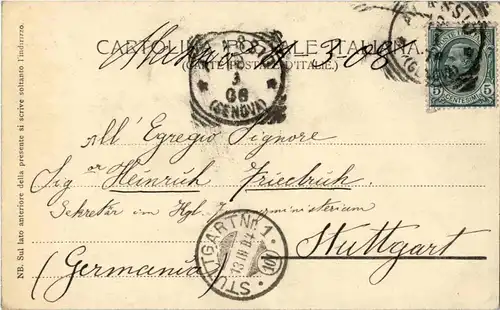 CARTOLINA POSTALE ITALIANA
(CARTE POSTALE D'ITALIE.)
3-08
08
(GENOVA)
5 CENTESIMI 5
NB. Sul lato anteriore della presente si scrive soltanto l'indirizzo.
All' Egregio Signore
Sig or Heinrich Friedrich
Sekretär im Kgl. ministerium
Stuttgart
(Germania)
STUTTGART Nr. 1
13 III 8-